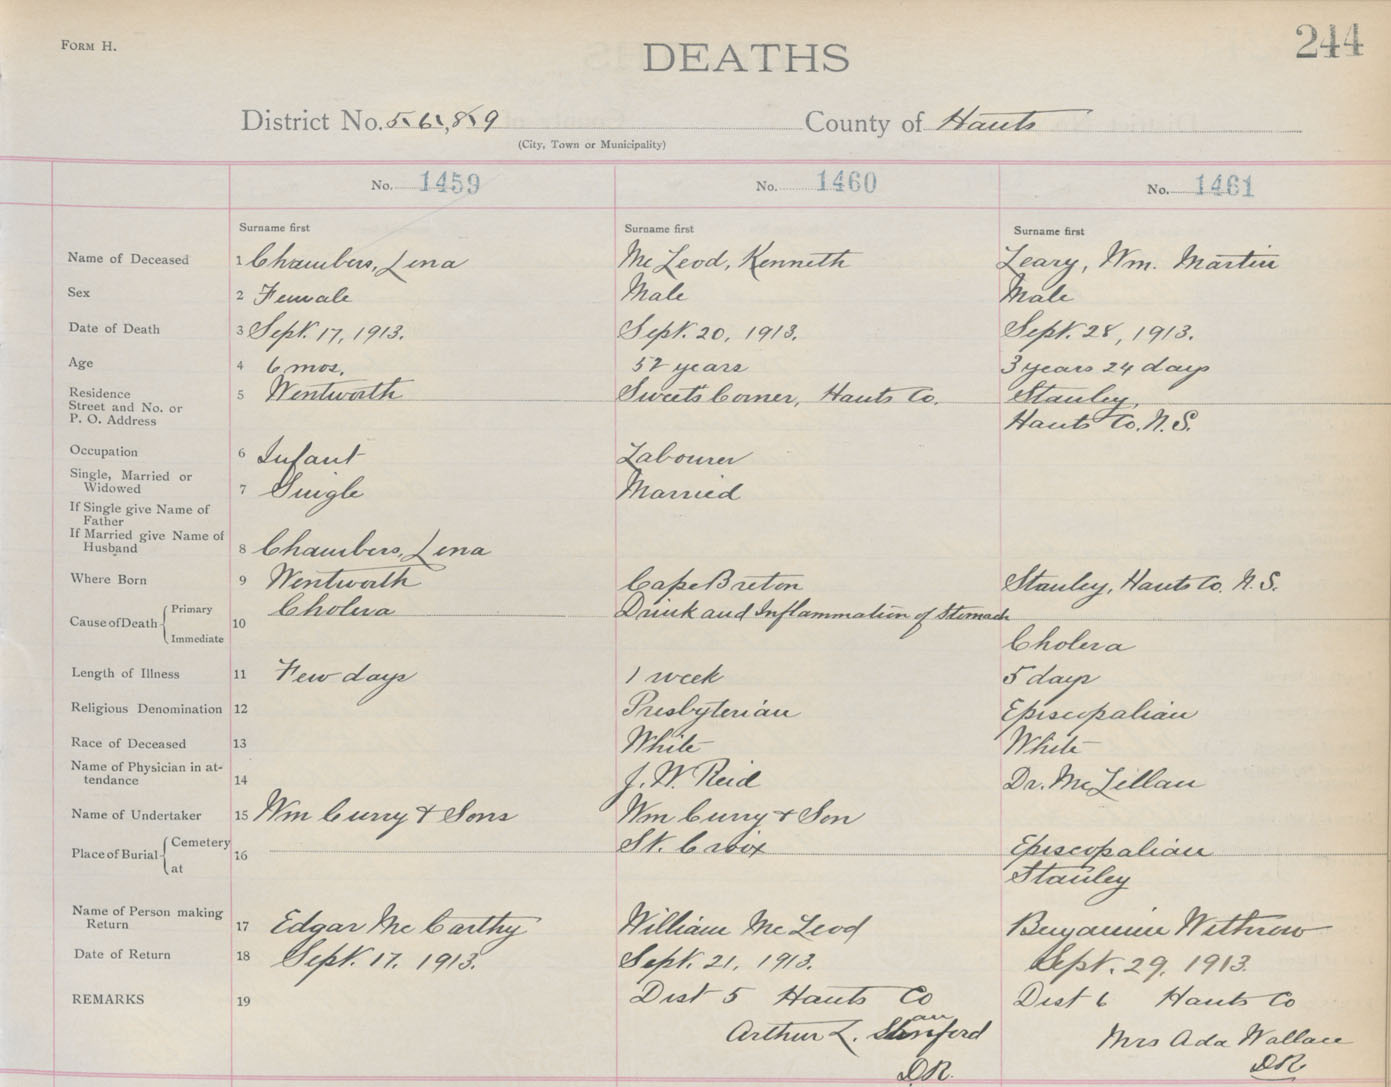 FORM H.
DEATHS
244
District No. 5, 6, 8, 9 County of Hants
(City, Town or Municipality)
No. 1459 No. 1460 No. 1461
Surname first Surname first Surname first
Name of Deceased 1 Chambers, Lena McLeod, Kenneth Leary, Wm. Martin
Sex 2 Female Male Male
Date of Death 3 Sept. 17, 1913. Sept. 20, 1913. Sept. 28, 1913.
Age 4 6 mos. 52 years 3 years 24 days
Residence 5 Wentworth Sweet's Corner, Hants Co. Stanley,
Street and No. or
P. O. Address Hants Co. N.S.
Occupation 6 Infant Labourer
Single, Married or
Widowed 7 Single Married
If Single give Name of
Father
If Married give Name of
Husband 8 Chambers, Lena
Where Born 9 Wentworth Cape Breton Stanley, Hants Co. N.S.
Cause of Death Primary 10 Cholera Drink and Inflammation of Stomach
Immediate Cholera
Length of Illness 11 Few days 1 week 5 days
Religious Denomination 12 Presbyterian Episcopalian
Race of Deceased 13 White White
Name of Physician in at-
tendance 14 J. W. Reid Dr. McLellan
Name of Undertaker 15 Wm Curry & Sons Wm Curry & Son
Place of Burial Cemetery 16 St. Croix Episcopalian
at Stanley
Name of Person making
Return 17 Edgar McCarthy William McLeod Benjamin Withrow
Date of Return 18 Sept. 17, 1913. Sept. 21, 1913. Sept. 29, 1913
REMARKS 19 Dist 5 Hants Co Dist 6 Hants Co
Arthur L. Sanford Mrs Ada Wallace
D.R. D.R.